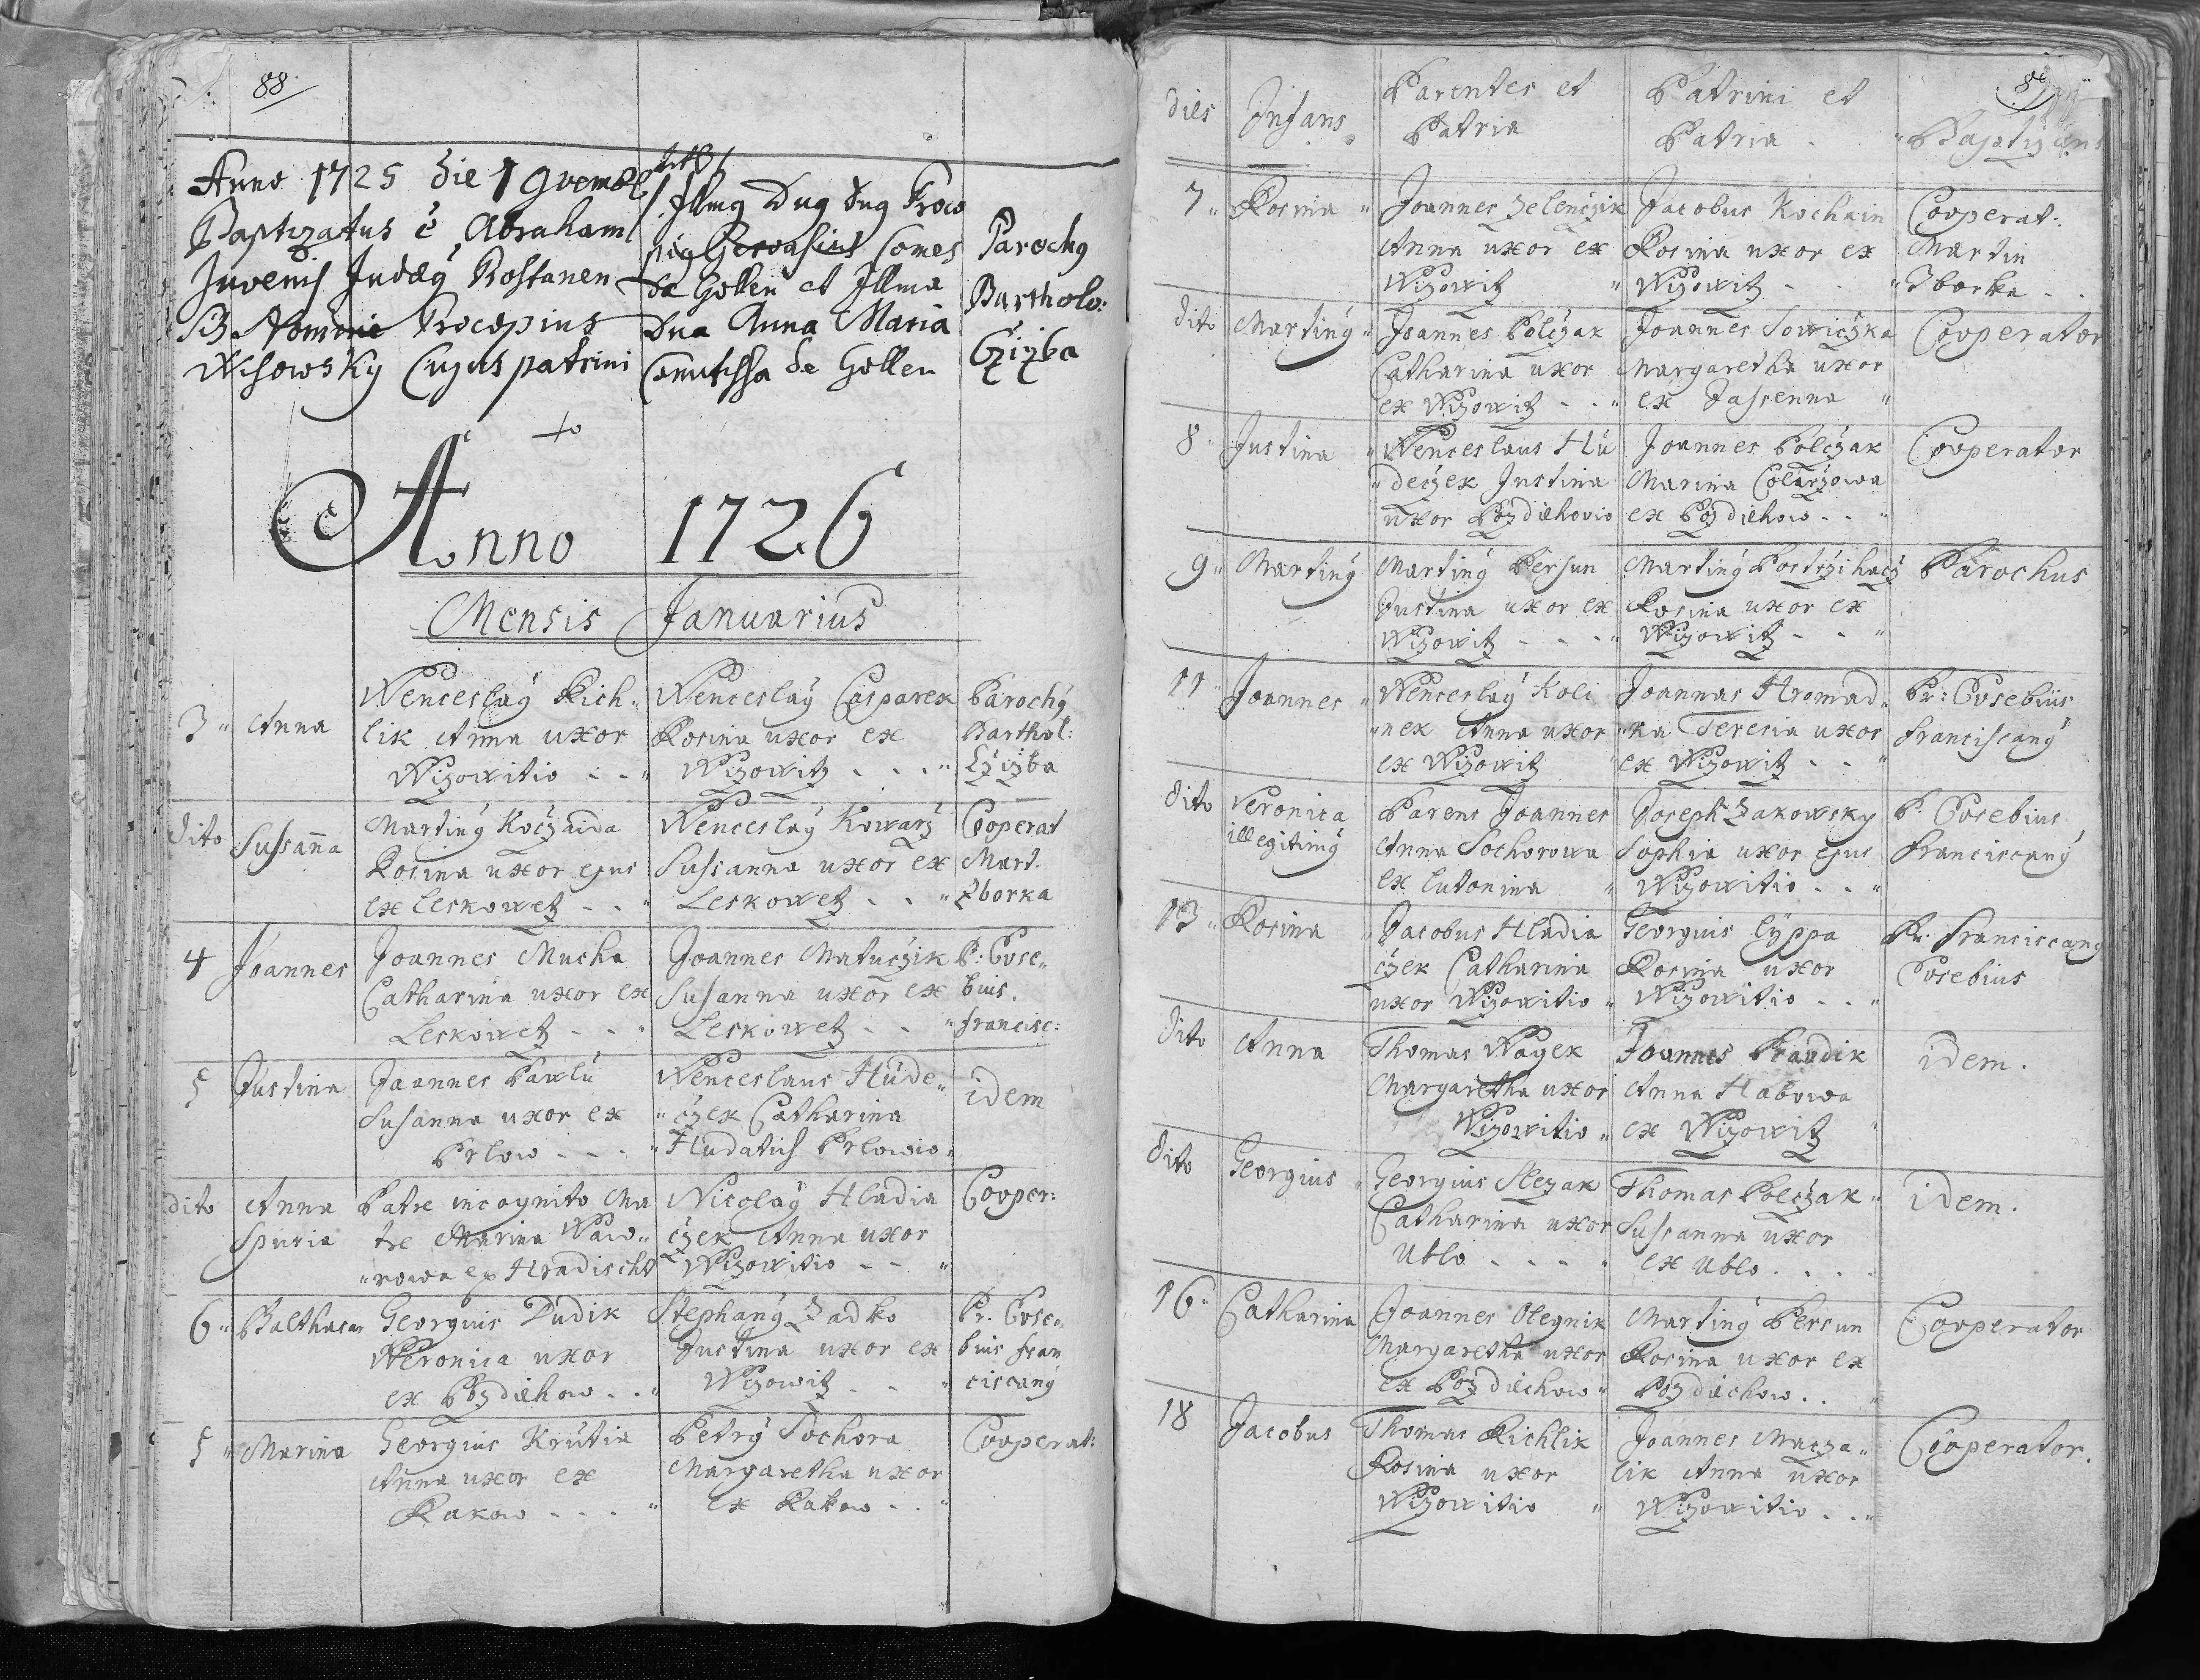 88
Anno 1725 die 1 9vembr
Baptizatus ē Abraham
Juvenis Judæy Rostanen
B Nomine Procopius
Wisowsky Cujus patrini
Illmg Dng Dng Proco
pig Gervasius Comes
de Gollen et Illma
Dna Anna Maria
Comitissa de Gollen
Parochg
Bartholo:
Czizba
Anno 1726
Mensis Januarius
3 Anna
Wenceslaÿ Rich-
lik Anna uxor
Wizowitio
Wenceslaÿ Casparek
Rosina uxor ex
Wizowitz
Parochÿ
Barthol:
Czizba
dito Sussana
Martinÿ Koczaida
Rosina uxor ejus
ex Leskowetz
Wenceslaÿ Kowarz
Sussanna uxor ex
Leskowetz
Cooperat
Mart.
Zborka
4 Joannes
Joannes Mucha
Catharina uxor ex
Leskowetz
Joannes Matuczik
Susanna uxor ex
Leskowetz
P: Euse„
bius.
Francisc:
5 Justina
Joannes Pawlü
Susanna uxor ex
Prlow
Wenceslaus Hude„
„czek Catharina
Hudatich Prlowio
idem
dito Anna
Spuria
Patre incognito Ma
tre Marina Waw„
„rowa ex Hradischt
Nicolaÿ Hladia
czek Anna uxor
Wizowitio
Cooper:
6 Balthasar
Georgius Dudik
Weronica uxor
ex Pozdiehow
Stephanÿ Zadko
Justina uxor ex
Wizowitz
Pr. Euse„
bius fran
ciscanÿ
5 Marina
Georgius Krutia
Anna uxor ex
Rakow
Petrÿ Sochora
Margaretha uxor
ex Rakow
Cooperat:
dies
Infans
Parentes et
Patria
Patrini et
Patria
Baptizans
7 Rosina
Joannes Zelenczik
Anna uxor ex
Wizowitz
Jacobus Kochain
Rosina uxor ex
Wizowitz
Cooperat:
Martin
Zborka
dito Martinÿ
Joannes Polczak
Catharina uxor
ex Wizowitz
Joannes Sowiczka
Margaretha uxor
ex Jassenna
Cooperator
8 Justina
Wenceslaus Hu
„deczek Justina
uxor Pozdiehovio
Joannes Polczak
Marina Colarzowa
ex Pozdiehow
Cooperator
9 Martinÿ
Martinÿ Persun
Justina uxor ex
Wizowitz
Martinÿ Postrzihacz
Rosina uxor ex
Wizowitz
Parochus
11 Joannes
Wenceslaÿ Koli
„nek Anna uxor
ex Wizowitz
Joannas Hromad„
„ka Teresia uxor
ex Wizowitz
Pr: Eusebius
Franciscanÿ
dito Veronica
illegitimÿ
Parens Joannes
Anna Sochorowa
ex Lutonina
Joseph Zakowsky
Sophia uxor ejus
Wizowitio
P. Eusebius
Franciscanÿ
13 Rosina
Jacobus Hladia
czek Catharina
uxor Wizowitio
Georgius Lyppa
Rosina uxor
Wizowitio
Pr. Franciscanÿ
Eusebius
dito Anna
Thomas Wagek
Margaretha uxor
Wizowitio
Joannes Prandik
Anna Habowa
ex Wizowitz
idem.
dito Georgius
Georgius Slezak
Catharina uxor
Ublo
Thomas Polczak
Sussanna uxor
ex Ublo
idem.
16 Catharina
Joannes Olegnik
Margaretha uxor
ex Pozdiechow
Martinÿ Persun
Rosina uxor ex
Pozdiechow
Cooperator
18 Jacobus
Thomas Richlik
Rosina uxor
Wizowitio
Joannes Macza„
lik Anna uxor
Wizowitio
Cooperator.